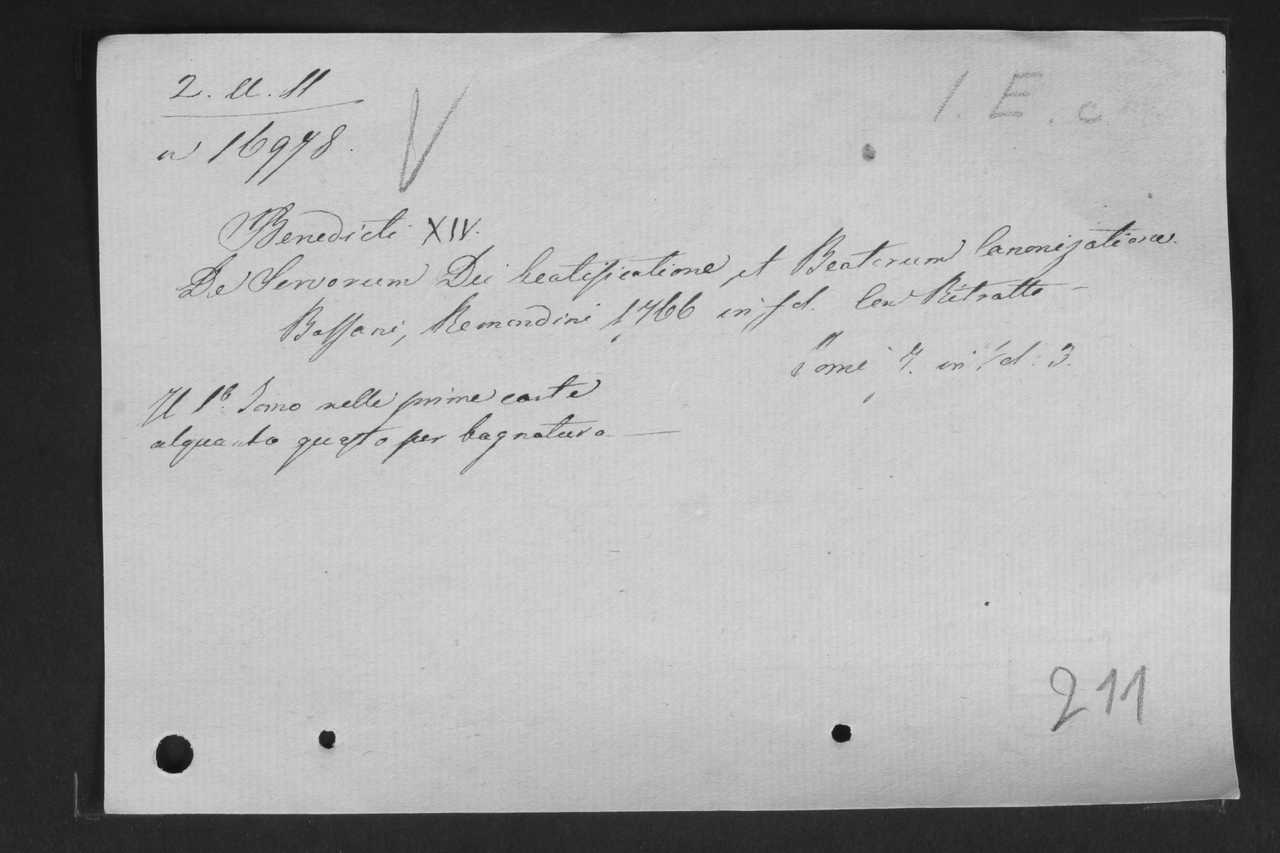 2. U. 11
1. E. c
n 16978.
V
Benedicti XIV.
De Servorum Dei beatificatione, et Beatorum Canonizatione.
Bassani, Remondini 1766 in fol. Con Ritratto –
Tomi 7. in fol: 3.
Il 1º. Tomo nelle prime carte
alquanto guasto per bagnatura —
211